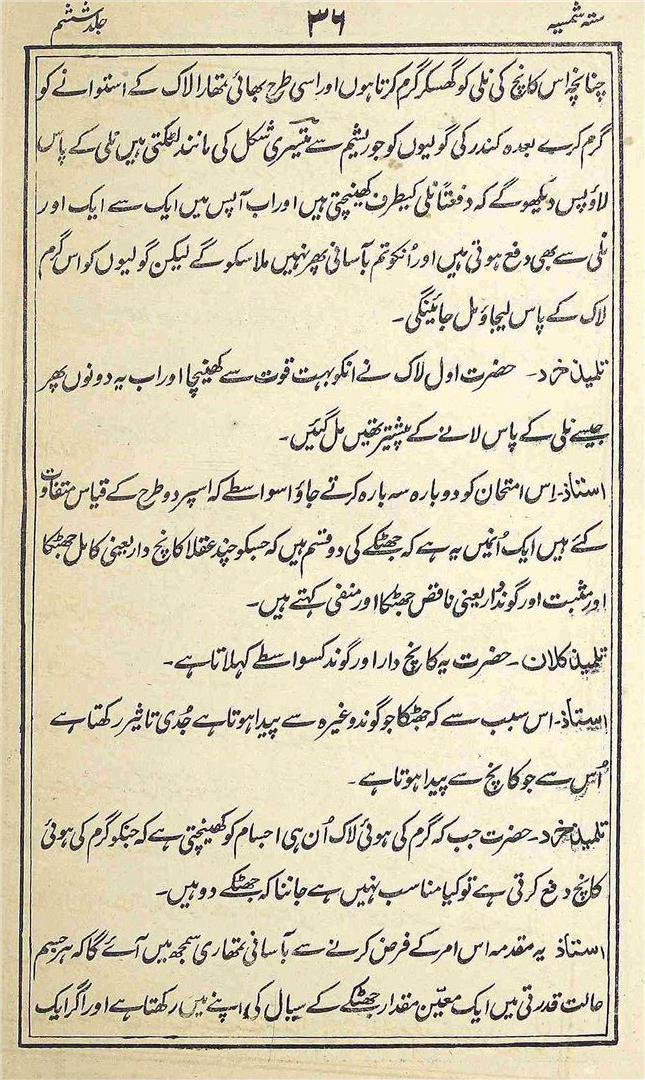 ستہ شمسیہ
۳۶
جلد ششم
چنانچہ اس کانچ کی نلی کو گھسکر گرم کرتا ہوں اور اسی طرح بھائی تمھارا لاک کے استوانے کو
گرم کرے بعدہ کندر کی گولیوں کو جو ریشم سے تیسری شکل کی مانند لٹکتی ہیں نلی کے پاس
لاؤ پس دیکھو گے کہ دفعتاً نلی کیطرف کھینچتی ہیں اور اب آپس میں ایک سے ایک اور
نلی سے بھی دفع ہوتی ہیں اور اُنکو تم بآسانی پھر نہیں ملا سکو گے لیکن گولیوں کو اس گرم
لاک کے پاس لیجاؤ مل جائینگی۔
تلمیذ خرد۔ حضرت اول لاک نے انکو بہت قوت سے کھینچا اور اب یہ دونوں پھر
جیسے نلی کے پاس لانے کے پیشتر تھیں مل گئیں۔
استاذ۔ اِس امتحان کو دوبارہ سہ بارہ کرتے جاؤ اسواسطے کہ اسپر دو طرح کے قیاس متفاوت
کئے ہیں ایک اُنمیں یہ ہے کہ جھٹکے کی دو قسم ہیں کہ جسکو چند عقلا کانچ دار یعنی کامل جھٹکا
اور مثبت اور گوند دار یعنی ناقص جھٹکا اور منفی کہتے ہیں۔
تلمیذ کلان۔ حضرت یہ کانچ دار اور گوند کسواسطے کہلاتا ہے۔
استاذ۔ اس سبب سے کہ جھٹکا جو گوند وغیرہ سے پیدا ہوتا ہے جُدی تاثیر رکھتا ہے
اُس سے جو کانچ سے پیدا ہوتا ہے۔
تلمیذ خرد۔ حضرت جب کہ گرم کی ہوئی لاک اُن ہی اجسام کو کھینچتی ہے کہ جنکو گرم کی ہوئی
کانچ دفع کرتی ہے تو کیا مناسب نہیں ہے جاننا کہ جھٹکے دو ہیں۔
استاذ یہ مقدمہ اس امر کے فرض کرنے سے بآسانی تمھاری سمجھ میں آئے گا کہ ہر جسم
حالت قدرتی میں ایک معیّن مقدار جھٹکے کے سیال کی اپنے میں رکھتا ہے اور اگر ایک